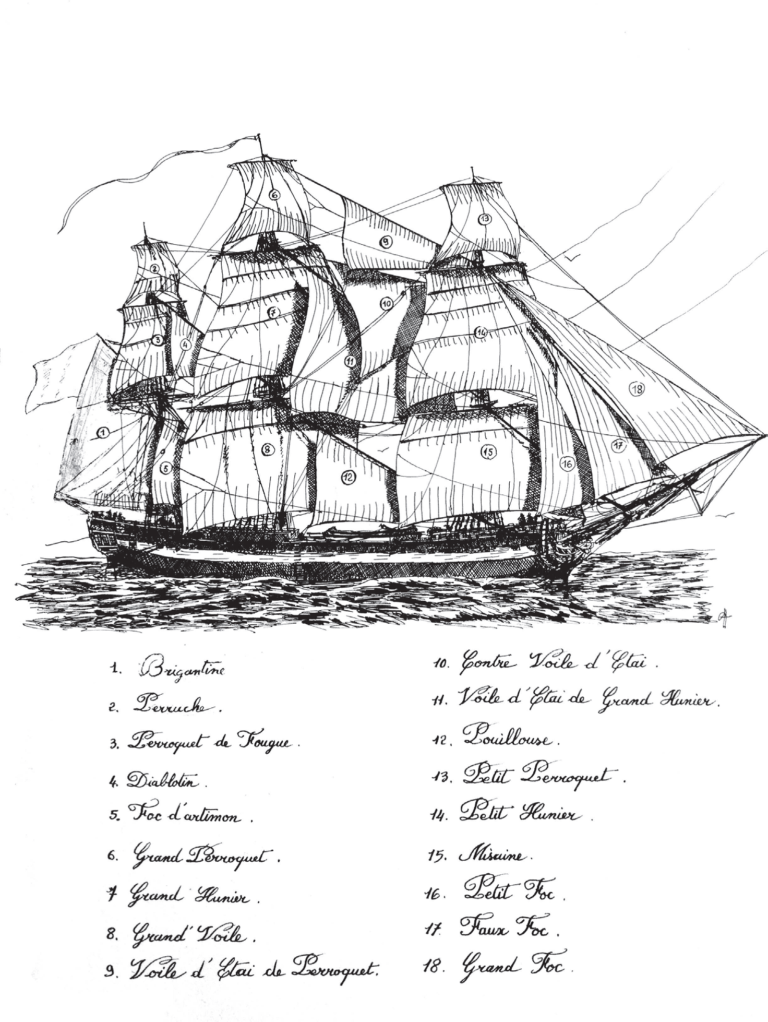 6
13
9
2
10
7
3
4
14
11
18
1
8
15
17
5
12
16
1. Brigantine
2. Perruche.
3. Perroquet de Fougue.
4. Diablotin.
5. Foc d'artimon.
6. Grand Perroquet.
7 Grand Hunier.
8. Grand' Voile.
9. Voile d'Etai de Perroquet.
10. Contre Voile d'Etai.
11. Voile d'Etai de Grand Hunier.
12. Pouillouse.
13. Petit Perroquet.
14. Petit Hunier.
15. Misaine.
16. Petit Foc.
17. Faux Foc.
18. Grand Foc.